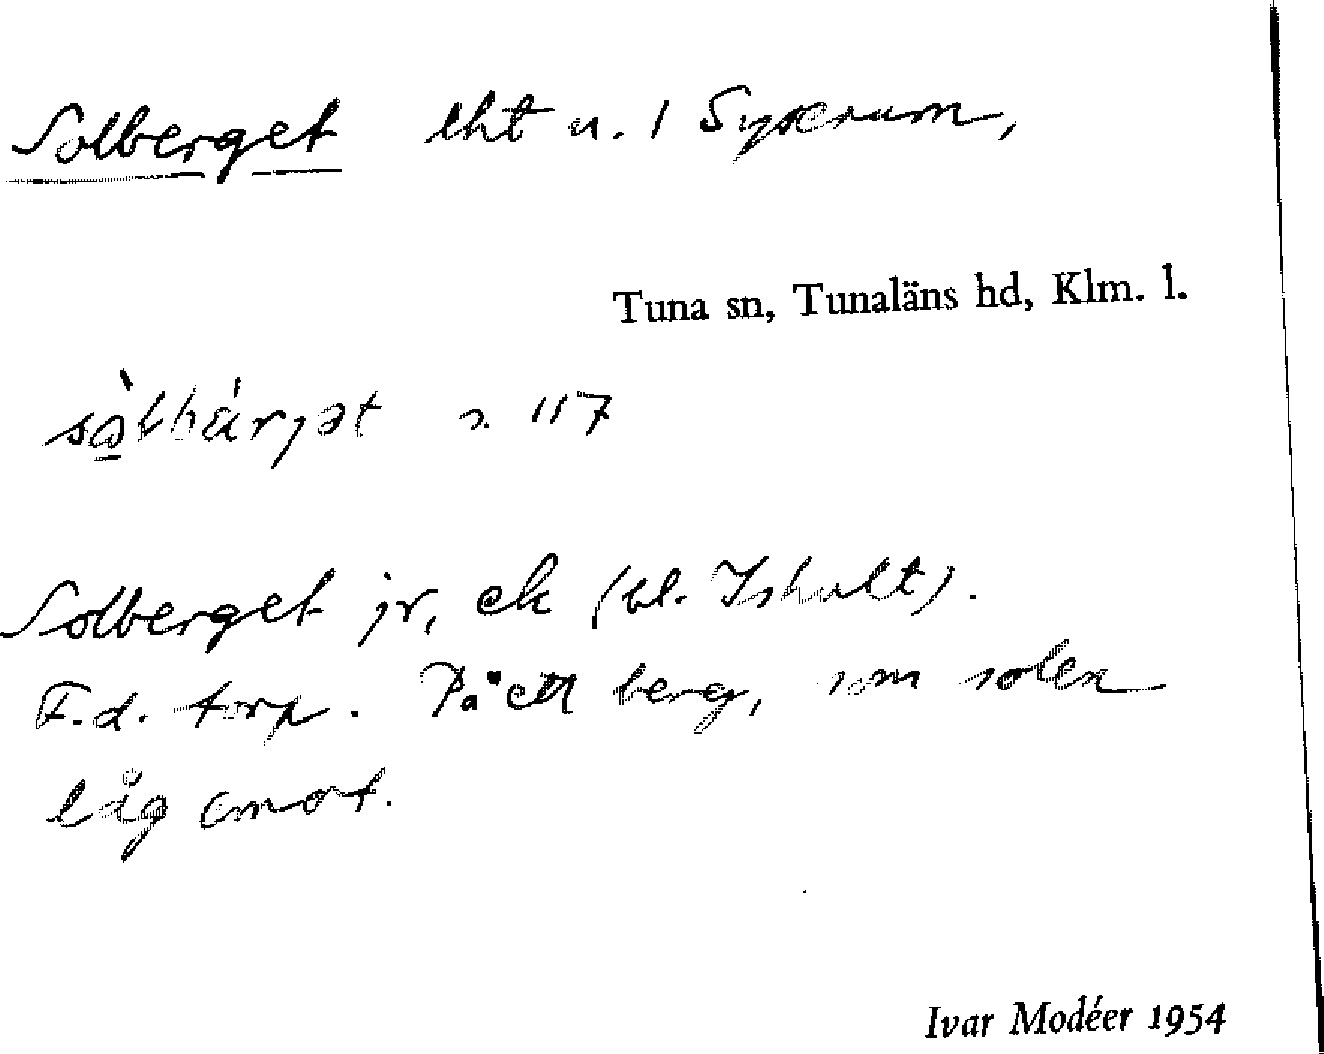 Solberget lht u. 1 Syserum,
Tuna sn, Tunaläns hd, Klm. l.
117
Solberget jr, ek (bl. Ishult).
F.d. torp. På ett berg, som solen
låg emot.
Ivar Modéer 1954